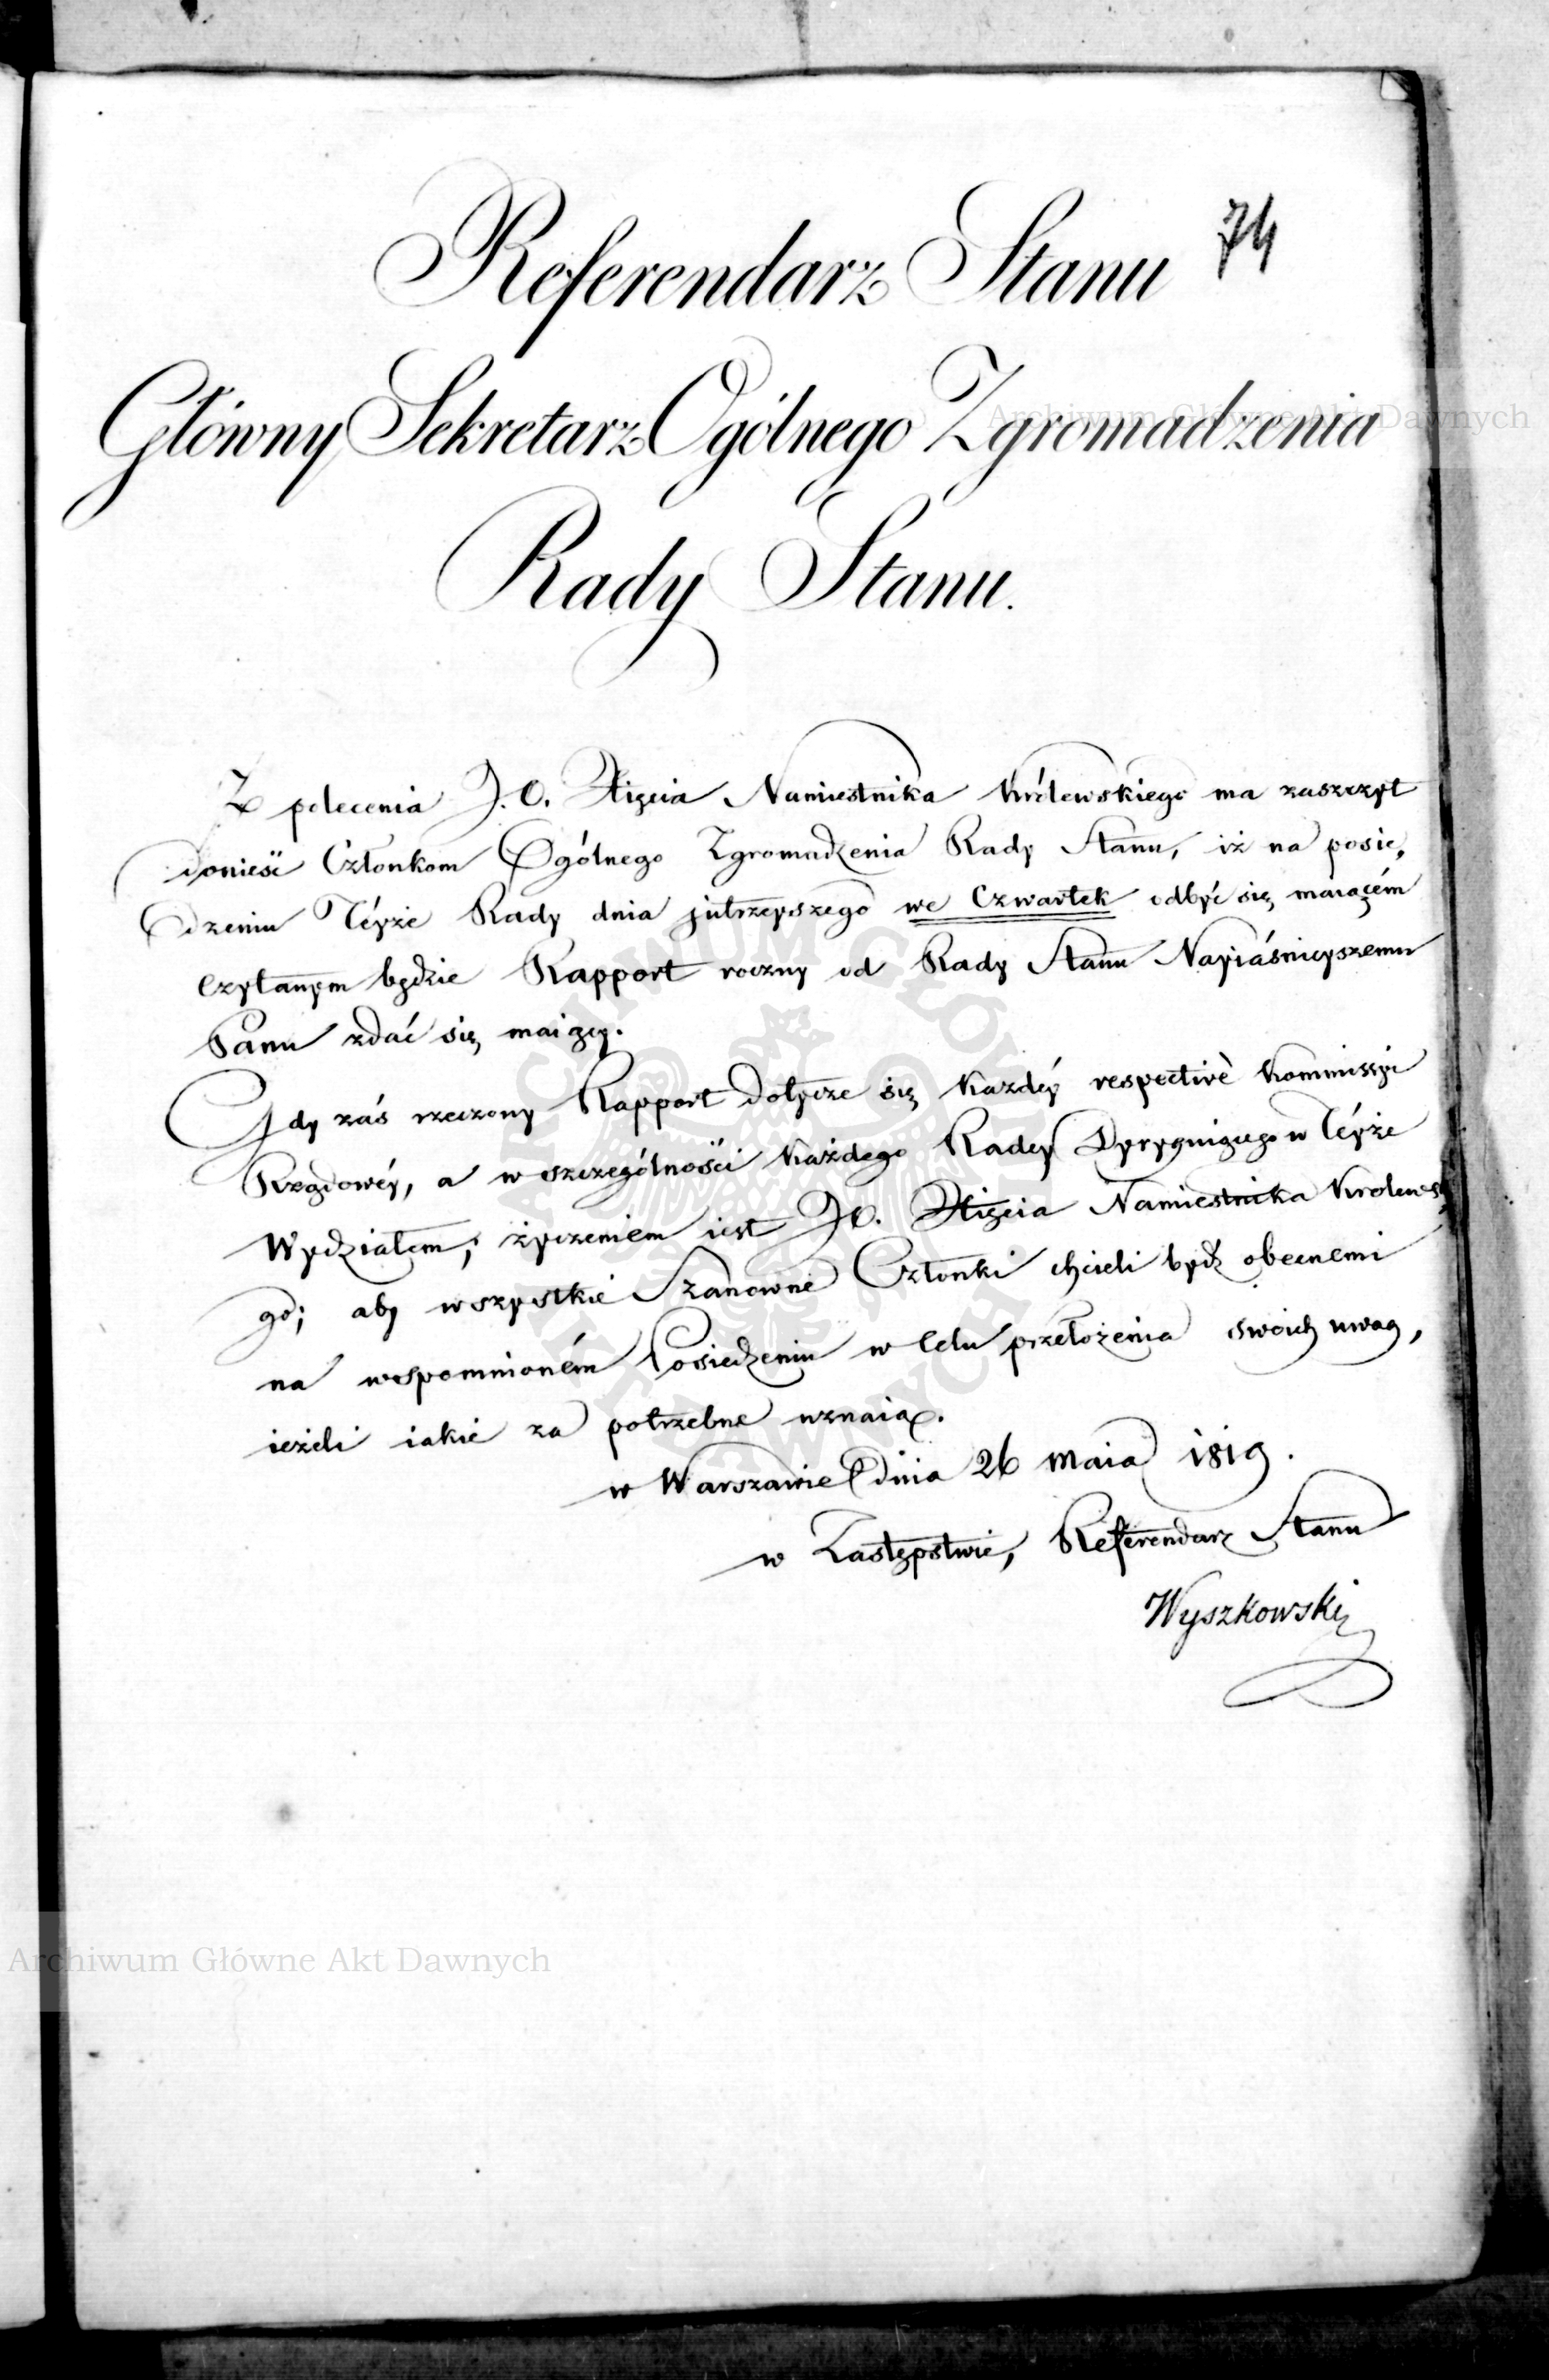 74
Referendarz Stanu
Główny Sekretarz Ogólnego Zgromadzenia
Rady Stanu.
Z polecenia J. O. Xięcia Namiestnika Królewskiego ma zaszczyt
donieść Członkom Ogólnego Zgromadzenia Rady Stanu, iż na posie,
dzeniu Téyże Rady dnia jutrzeyszego we Czwartek odbyć się maiącém
czytanym będzie Rapport roczny od Rady Stanu Nayiáśnieyszemu
Panu zdać się maiący.
Gdy záś rzeczony Rapport dotycze się każdéy respectivè Kommissyi
Rządowéy, a w szczególności każdego Radcy Dyryguiącego w Téyże
Wydziałem, życzeniem iest JO. Xięcia Namiestnika Królewsk
go; aby wszystkie Szanowne Członki chcieli bydź obecnemi
na wspomnioném Posiedzeniu w Celu przełożenia swoich uwag,
ieżeli iakie za potrzebne uznaią.
w Warszawie dnia 26 Maia 1819.
w Zastępstwie, Referendarz Stanu
Wyszkowski
Archiwum Główne Akt Dawnych
Archiwum Główne Akt Dawnych
ARCHIWUM GŁÓWNE AKT DAWNYCH